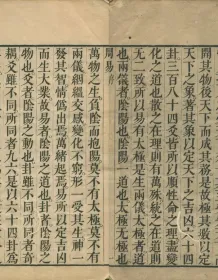 開其物後天下而成其務是故極其數以定
天下之象著其象以定天下之吉凶六十四
卦三百八十四爻皆所以順性命之理盡變
化之道也散之在理則有萬殊統之在道則
无二致所以易有太極是生兩儀太極者道
也兩儀者陰陽也陰陽一道也太極无極也
周易
萬物之生負陰而抱陽莫不有太極莫不有
兩儀絪縕交感變化不窮形一受其生神一
發其智情偽出焉萬緒起焉易所以定吉凶
而生大業故易者陰陽之道也卦者陰陽之
物也爻者陰陽之動也卦雖不同所同者奇
耦爻雖不同所同者九六是以六十四卦為